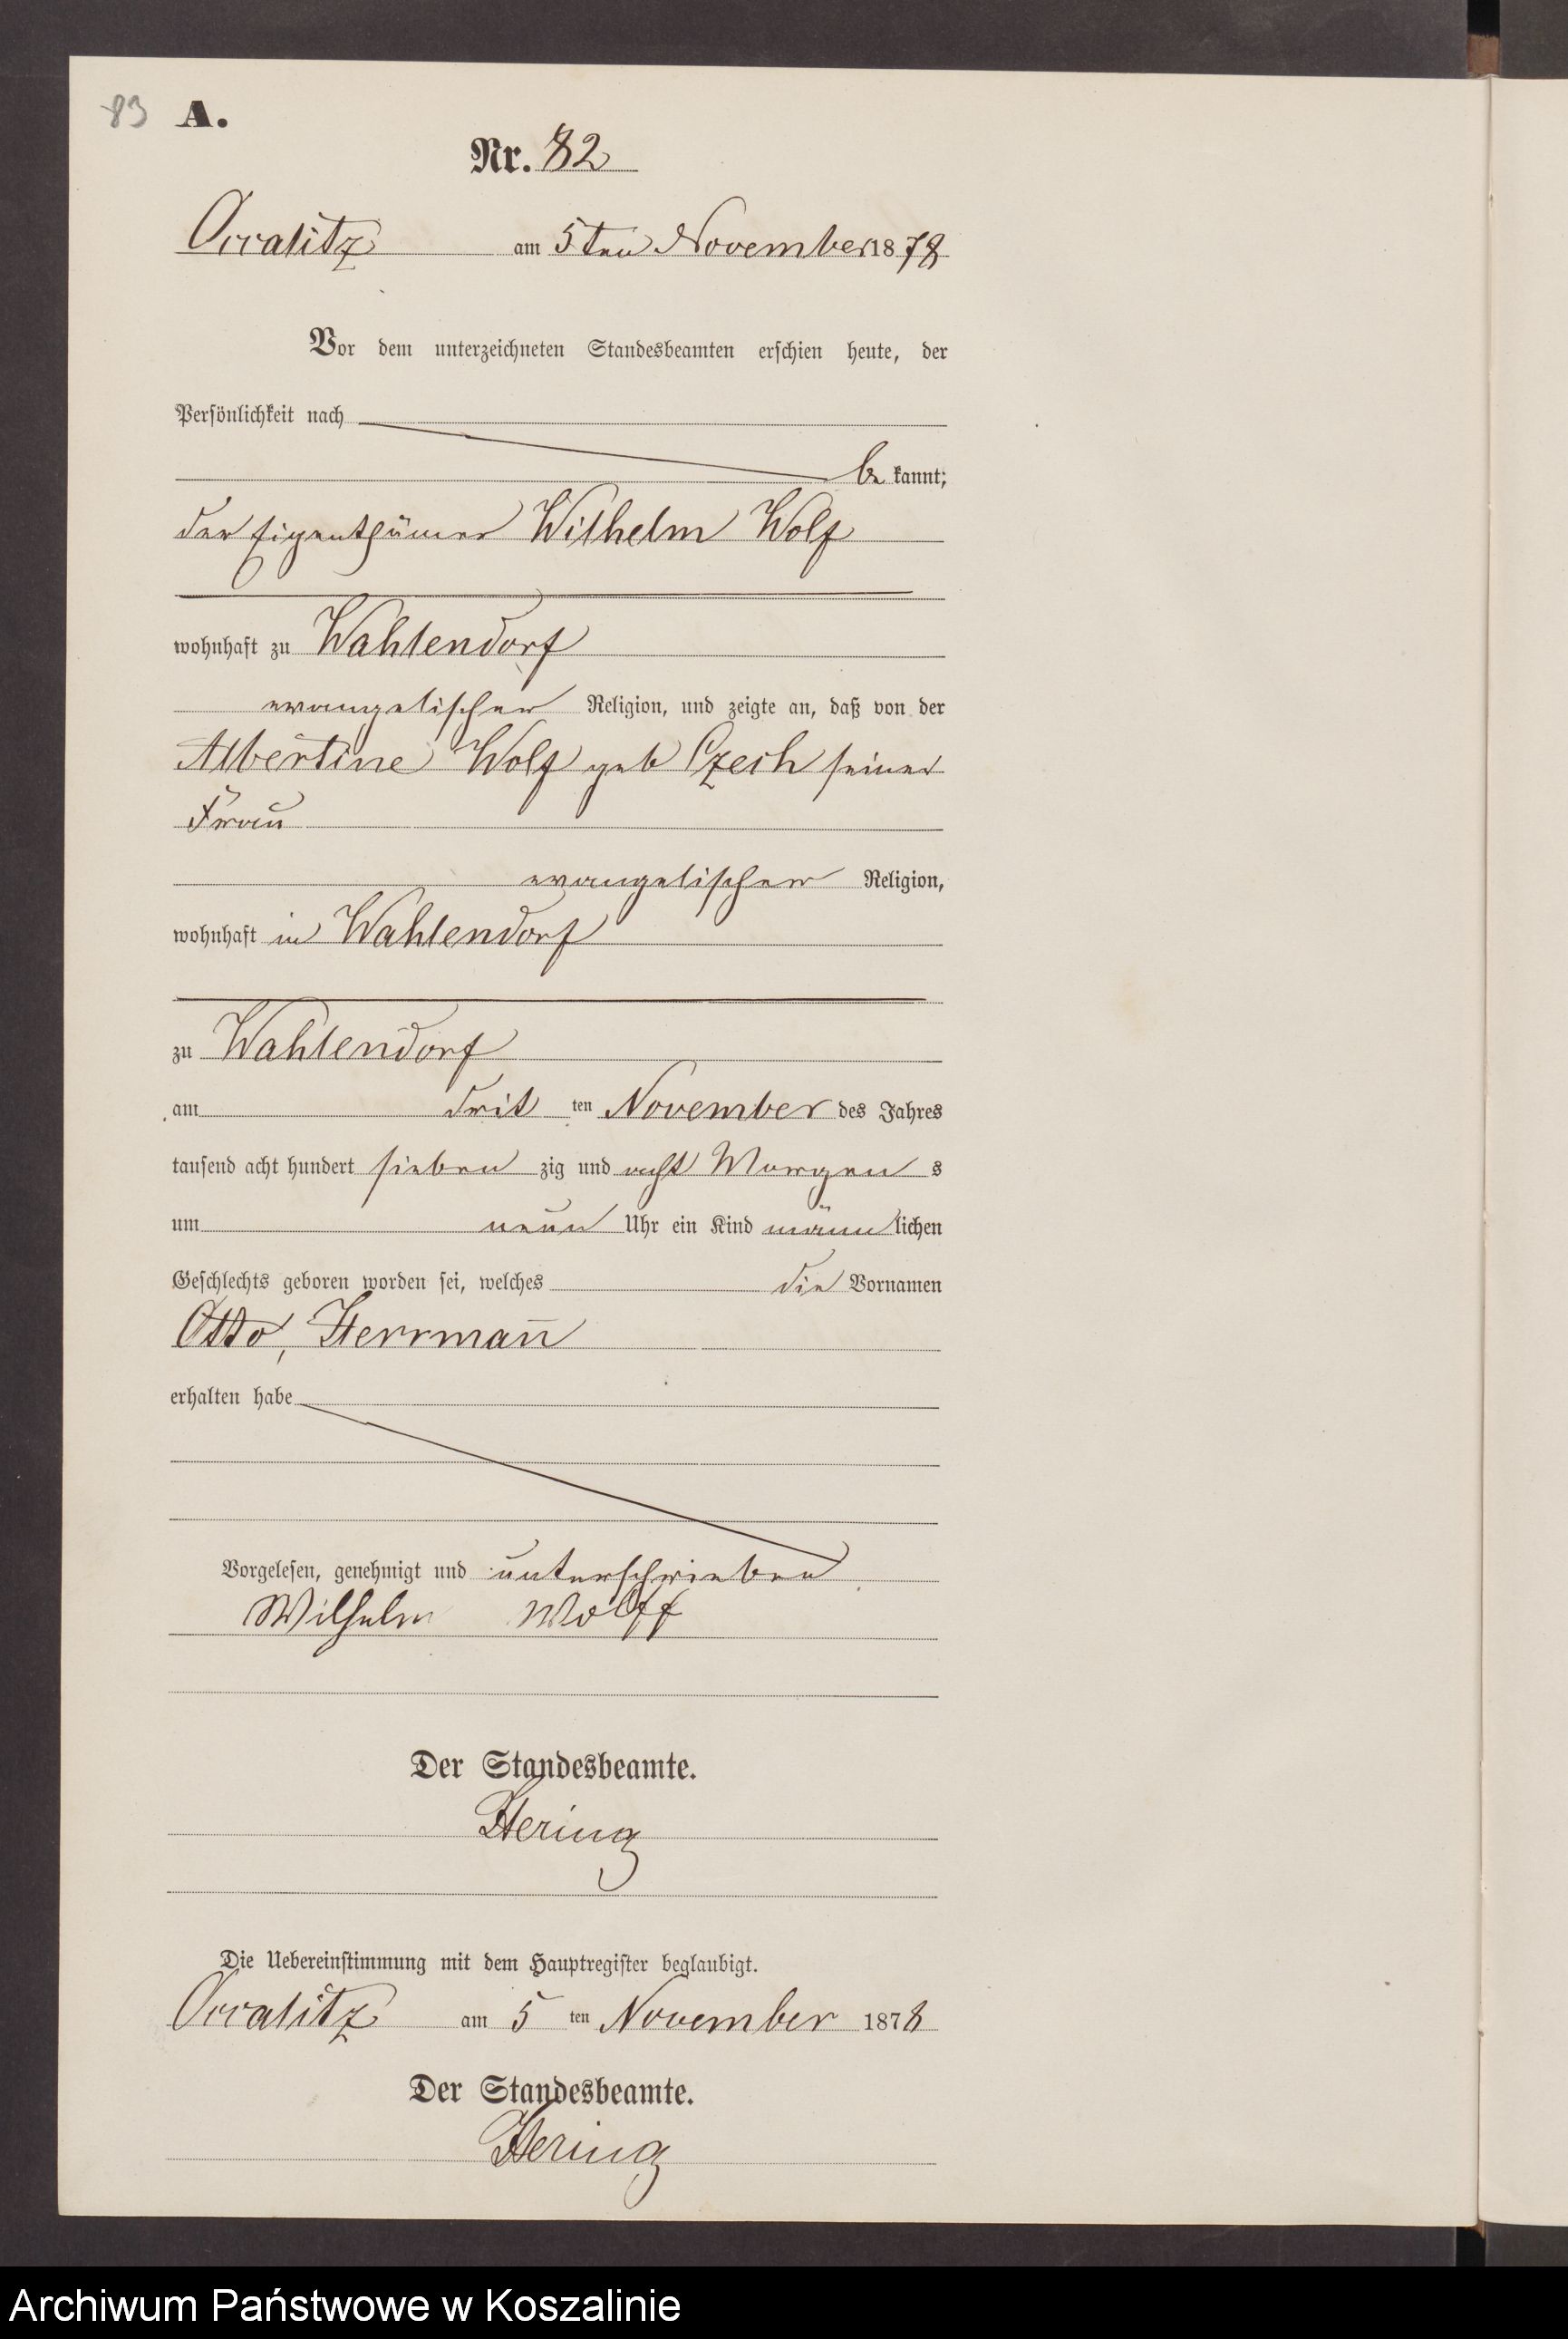 83 A.
Nr. 82
Occalitz am 5ten November 1878
Vor dem unterzeichneten Standesbeamten erschien heute, der
Persönlichkeit nach
be kannt;
der Eigenthümer Wilhelm Wolf
wohnhaft zu Wahlendorf
evangelischer Religion, und zeigte an, daß von der
Albertine Wolf geb Czech seiner
Frau
evangelischer Religion,
wohnhaft in Wahlendorf
zu Wahlendorf
am drit ten November des Jahres
tausend acht hundert sieben zig und acht Morgen s
um neun Uhr ein Kind männ lichen
Geschlechts geboren worden sei, welches die Vornamen
Otto, Herrmañ
erhalten habe
Vorgelesen, genehmigt und unterschrieben
Wilhelm Wolff
Der Standesbeamte.
Hering
Die Uebereinstimmung mit dem Hauptregister beglaubigt.
Occalitz am 5 ten November 1878
Der Standesbeamte.
Hering
Archiwum Państwowe w Koszalinie